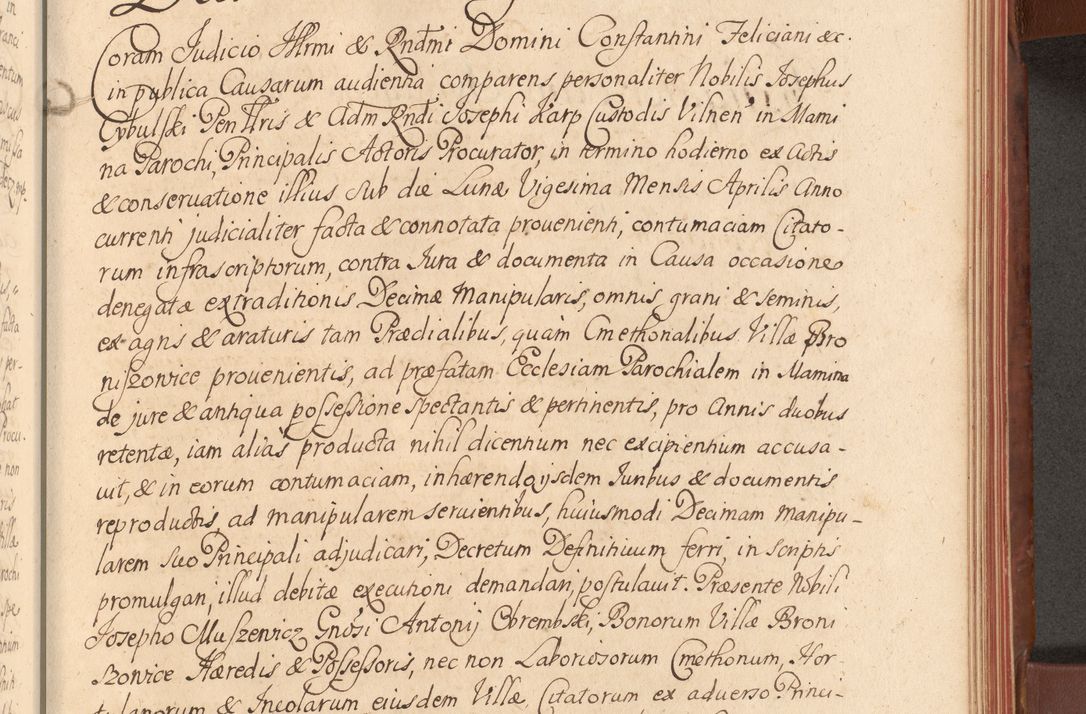 Coram Judicio Illrmi & Rndmi Domini Constantini Feliciani &c.
in publica Causarum audientia comparens personaliter Nobilis Josephus
Cybulski Pen Illris & Adm Rndi Josephi Karp Custodis Vilnen in Mami
na Parochi, Principalis Actoris Procurator, in termino hodierno ex Actis
& conseruatione illius sub die Lunæ Vigesima Mensis Aprilis Anno
currenti judicialiter facta & connotata prouenienti, contumaciam Citato-
rum infrascriptorum, contra Jura & documenta in Causa occasione
denegatæ extraditionis Decimæ Manipularis, omnis grani & seminis,
ex agris & araturis tam Prædialibus, quam Cmethonalibus Villæ Bro
niszowice prouenientis, ad præfatam Ecclesiam Parochialem in Mamina
de jure & antiqua possessione spectantis & pertinentis, pro Annis duobus
retentæ, iam alias producta nihil dicentium nec excipientium accusa-
uit, & in eorum contumaciam, inhærendo ijsdem Juribus & documentis
reproductis, ad manipularem seruientibus, huiusmodi Decimam manipu-
larem suo Principali adjudicari, Decretum Definitiuum ferri, in scriptis
promulgari, illud debitæ executioni demandari, postulauit. Præsente Nobili
Josepho Muszenicz Gnosi Antonij Obrembski, Bonorum Villæ Broni
szowice Hæredis & Possessoris, nec non Laboriosorum Cmethonum, Hor-
tulanorum & Incolarum eiusdem Villæ Citatorum ex aduerso Princi-